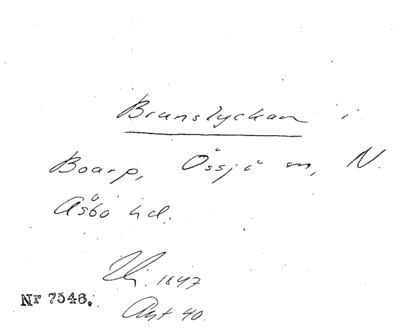 Brunslyckan i
Boarp, Össjö sn, N.
Åsbo hd.
1847
Nr 7546.
Akt 40.